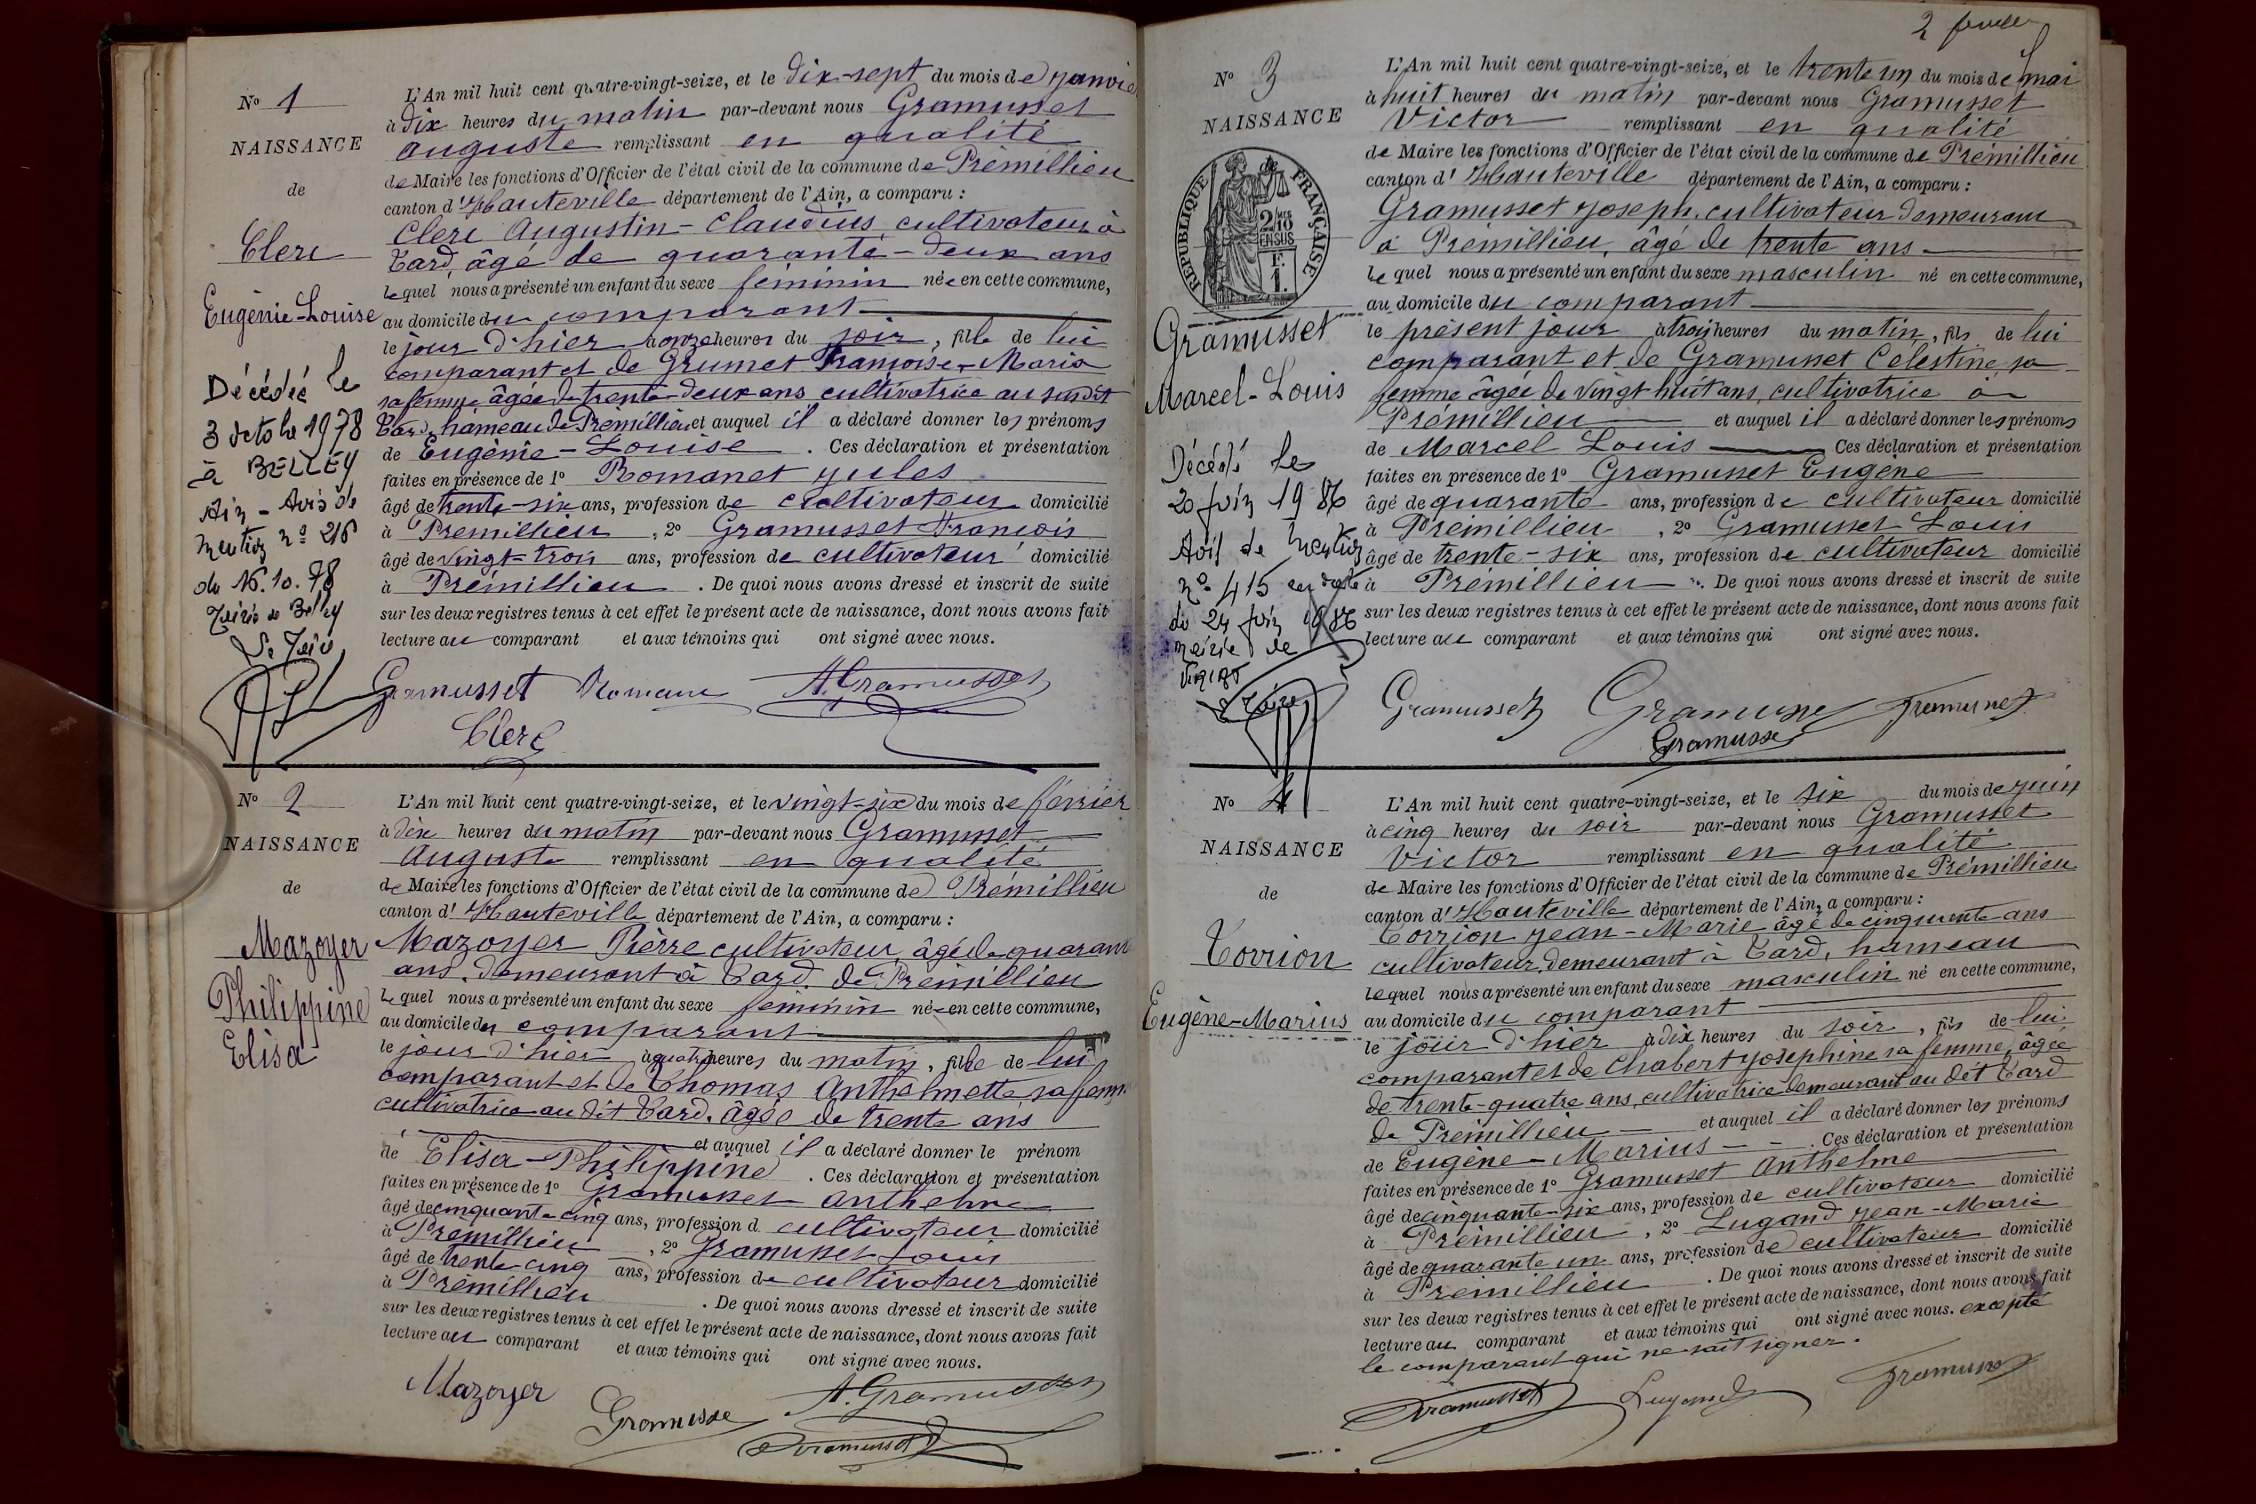 N° 1
NAISSANCE
de
Clerc
Eugénie-Louise
Décédée le
3 octobre 1978
à BELLEY
Ain - Avis de
mention n° 216
du 16.10.78
Mairie de Belley
Le Maire
L'An mil huit cent quatre-vingt-seize, et le dix-sept du mois de janvier
à dix heures du matin par-devant nous Gramusset
Auguste remplissant en qualité
de Maire les fonctions d'Officier de l'état civil de la commune de Prémillieu
canton d'Hauteville département de l'Ain, a comparu :
Clerc Augustin-Claudius, cultivateur à
Tard, âgé de quarante-deux ans
lequel nous a présenté un enfant du sexe féminin née en cette commune,
au domicile du comparant
le jour d'hier à onze heures du soir, fille de lui
comparant et de Grumet Françoise-Maria
sa femme âgée de trente-deux ans cultivatrice au susdit
Tard, hameau de Prémillieu et auquel il a déclaré donner les prénoms
de Eugénie-Louise . Ces déclaration et présentation
faites en présence de 1° Romanet Jules
âgé de trente-six ans, profession de cultivateur domicilié
à Prémillieu , 2° Gramusset François
âgé de vingt-trois ans, profession de cultivateur domicilié
à Prémillieu . De quoi nous avons dressé et inscrit de suite
sur les deux registres tenus à cet effet le présent acte de naissance, dont nous avons fait
lecture au comparant et aux témoins qui ont signé avec nous.
Gramusset Romanet A. Gramusset
Clerc
N° 2
NAISSANCE
de
Mazoyer
Philippine
Elisa
L'An mil huit cent quatre-vingt-seize, et le vingt-six du mois de février
à dix heures du matin par-devant nous Gramusset
Auguste remplissant en qualité
de Maire les fonctions d'Officier de l'état civil de la commune de Prémillieu
canton d'Hauteville département de l'Ain, a comparu :
Mazoyer Pierre cultivateur, âgé de quarante
ans, demeurant à Tard, de Prémillieu
lequel nous a présenté un enfant du sexe féminin née en cette commune,
au domicile du comparant
le jour d'hier à quatre heures du matin, fille de lui
comparant et de Thomas Anthelmette sa femme
cultivatrice au dit Tard, âgée de trente ans
et auquel il a déclaré donner le prénom
de Elisa-Philippine . Ces déclaration et présentation
faites en présence de 1° Gramusset Anthelme
âgé de cinquante-cinq ans, profession d cultivateur domicilié
à Prémillieu , 2° Gramusset Louis
âgé de trente cinq ans, profession de cultivateur domicilié
à Prémillieu . De quoi nous avons dressé et inscrit de suite
sur les deux registres tenus à cet effet le présent acte de naissance, dont nous avons fait
lecture au comparant et aux témoins qui ont signé avec nous.
Mazoyer Gramusse A. Gramusset
Gramusset
2
N° 3
NAISSANCE
RÉPUBLIQUE FRANÇAISE
2/10 EN SUS
F. 1.
Gramusset
Marcel-Louis
Décédé le
20 juin 1986
Avis de mention
n° 415 en date
du 24 juin 1986
mairie de
L'An mil huit cent quatre-vingt-seize, et le trente un du mois de mai
à huit heures du matin par-devant nous Gramusset
Victor remplissant en qualité
de Maire les fonctions d'Officier de l'état civil de la commune de Prémillieu
canton d'Hauteville département de l'Ain, a comparu :
Gramusset Joseph, cultivateur demeurant
à Prémillieu, âgé de trente ans
lequel nous a présenté un enfant du sexe masculin né en cette commune,
au domicile du comparant
le présent jour à trois heures du matin, fils de lui
comparant et de Gramusset Célestine sa
femme âgée de vingt huit ans, cultivatrice à
Prémillieu et auquel il a déclaré donner les prénoms
de Marcel Louis Ces déclaration et présentation
faites en présence de 1° Gramusset Eugène
âgé de quarante ans, profession de cultivateur domicilié
à Prémillieu , 2° Gramusset Louis
âgé de trente-six ans, profession de cultivateur domicilié
à Prémillieu . De quoi nous avons dressé et inscrit de suite
sur les deux registres tenus à cet effet le présent acte de naissance, dont nous avons fait
lecture au comparant et aux témoins qui ont signé avec nous.
Gramusset Gramusset Gramusset
Gramusse
N° 4
NAISSANCE
de
Torrion
Eugène-Marius
L'An mil huit cent quatre-vingt-seize, et le six du mois de juin
à cinq heures du soir par-devant nous Gramusset
Victor remplissant en qualité
de Maire les fonctions d'Officier de l'état civil de la commune de Prémillieu
canton d'Hauteville département de l'Ain, a comparu :
Torrion Jean-Marie âgé de cinquante ans
cultivateur, demeurant à Tard, hameau
lequel nous a présenté un enfant du sexe masculin né en cette commune,
au domicile du comparant
le jour d'hier à dix heures du soir, fils de lui
comparant et de Chabert Josephine sa femme, âgée
de trente-quatre ans, cultivatrice demeurant au dit Tard
de Prémillieu et auquel il a déclaré donner les prénoms
de Eugène-Marius . Ces déclaration et présentation
faites en présence de 1° Gramusset Anthelme
âgé de cinquante-six ans, profession de cultivateur domicilié
à Prémillieu , 2° Lugand Jean-Marie
âgé de quarante un ans, profession de cultivateur domicilié
à Prémillieu . De quoi nous avons dressé et inscrit de suite
sur les deux registres tenus à cet effet le présent acte de naissance, dont nous avons fait
lecture au comparant et aux témoins qui ont signé avec nous. excepté
le comparant qui ne sait signer.
Gramusset Lugand Gramusset